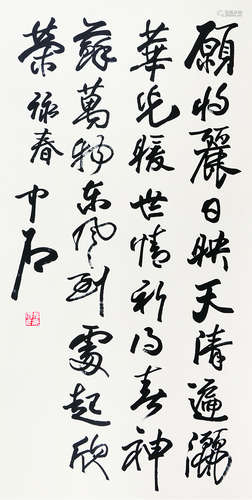 願將麗日映天清遍灑
華光暖世情祈得春神
蘇萬物東風到處起欣
榮 詠春 中石